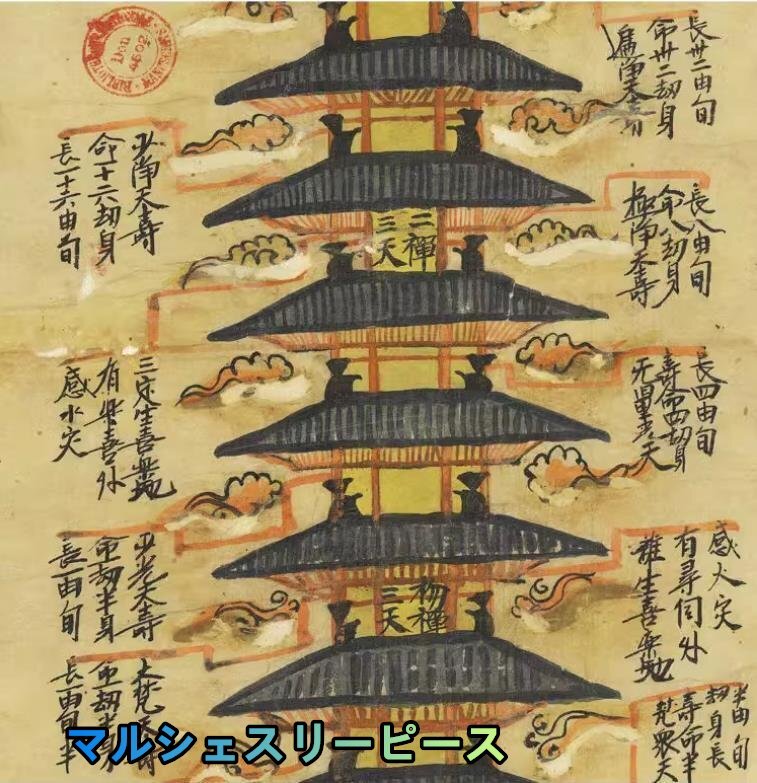 Don
4502
遍淨天壽
命卅二劫身
長卅二由旬
少淨天壽
命十六劫身
長一十六由旬
二禪
三天
極淨天壽
命八劫身
長八由旬
无量光天
壽命四劫身
長四由旬
三定生喜樂地
有樂喜外
感水灾
少光天壽
命劫半身
長一由旬
初禪
三天
離生喜樂地
有尋伺外
感火灾
大梵天壽
命劫半身
長一由旬半
梵眾天
壽命半
劫身長
半由旬
マルシェスリーピース